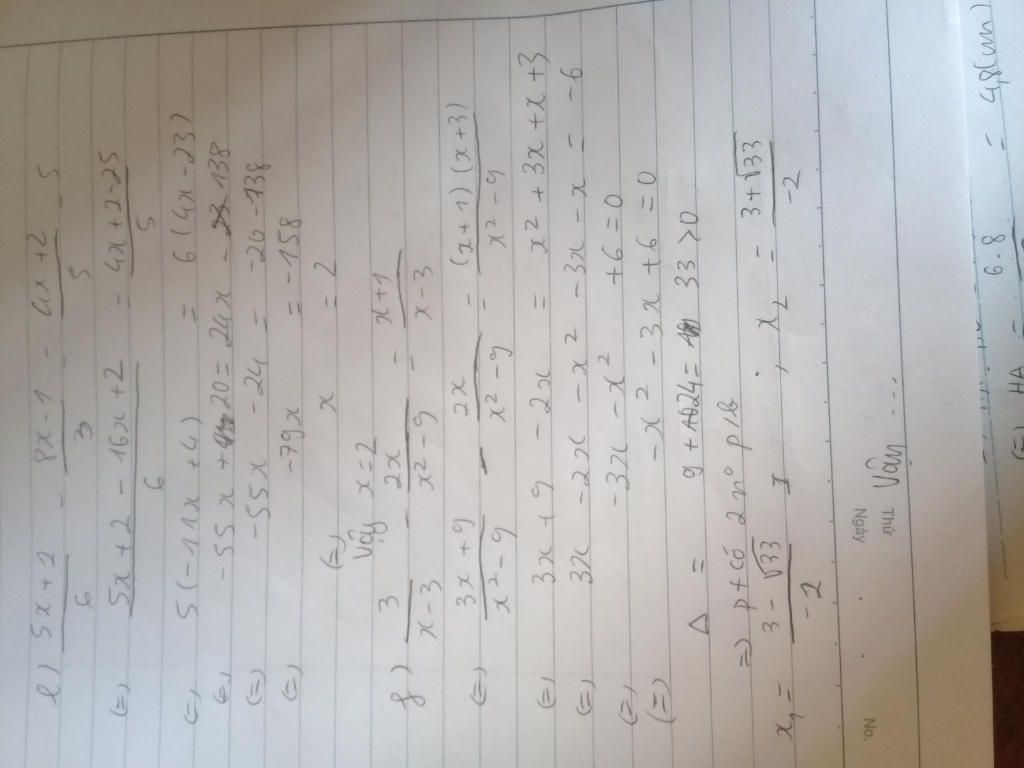 e) (5x+2)/6 - (8x-1)/3 = (4x+2)/5 - 5
(=) (5x+2-16x+2)/6 = (4x+2-25)/5
(=) 5(-11x+4) = 6(4x-23)
(=) -55x + 20 = 24x - 138
(=) -55x - 24 = -20-138
(=) -79x = -158
(=) x = 2
Vậy x=2
f) 3/(x-3) - 2x/(x²-9) = (x+1)/(x-3)
(=) (3x+9)/(x²-9) - 2x/(x²-9) = (x+1)(x+3)/(x²-9)
(=) 3x+9 - 2x = x²+3x+x+3
(=) 3x - 2x - x² - 3x - x = -6
(=) -3x - x² + 6 = 0
(=) -x² - 3x + 6 = 0
Δ = 9 + 24 = 33 > 0
=) pt có 2 no p/b
x₁ = (3-√33)/-2 ; x₂ = (3+√33)/-2
Vậy ...
No.
Thứ
Ngày
6.8 = 4,8(cm)
(=) HA =